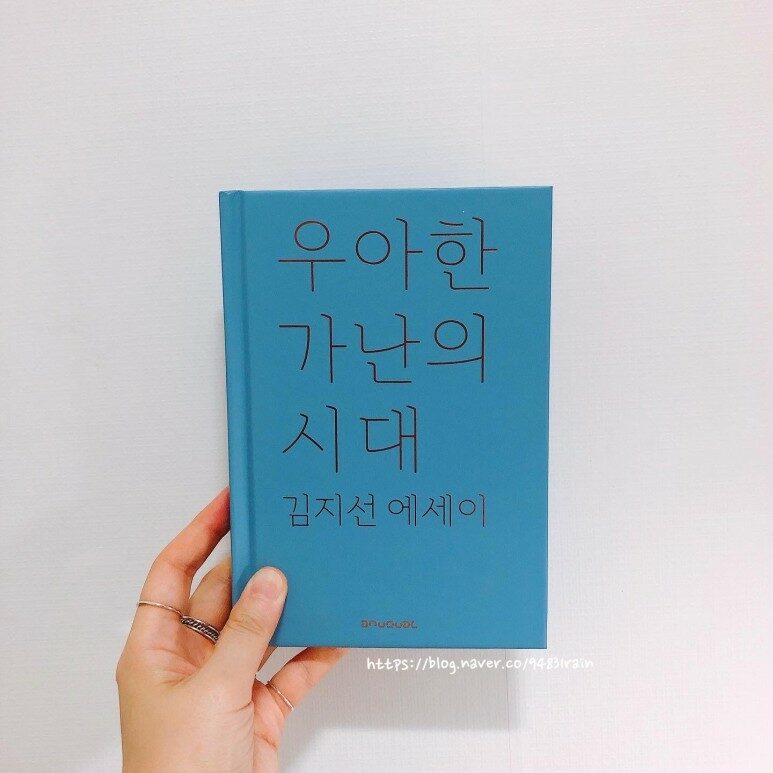 우아한
가난의
시대
김지선 에세이
https://blog.naver.co/94831rain